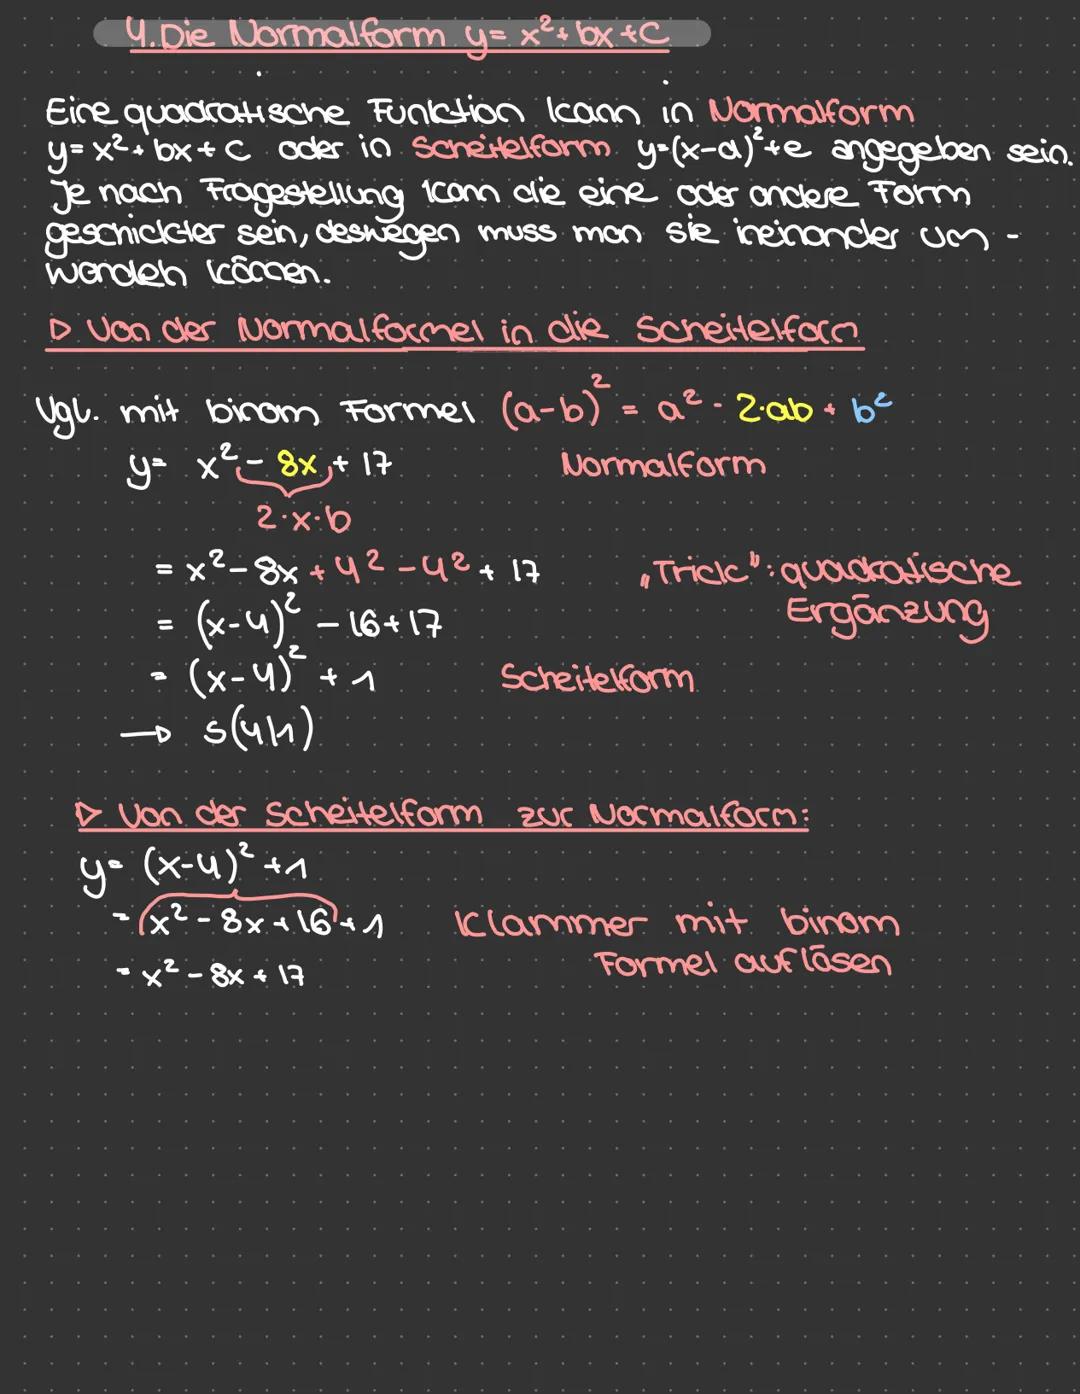 4. Die Normalform y = x² + bx + c
Eine quadratische Funktion kann in Normalform
y = x² + bx + c oder in Scheitelform y=(x-d)²+e angegeben sein.
Je nach Fragestellung kann die eine oder andere Form
geschickter sein, deswegen muss man sie ineinander um-
wandeln können.
▷ Von der Normalformel in die Scheitelform
Vgl. mit binom Formel (a-b)² = a² - 2·ab + b²
y = x² - 8x + 17 Normalform
2·x·b
= x² - 8x + 4² - 4² + 17 „Trick": quadratische
Ergänzung
= (x-4)² - 16 + 17
= (x-4)² + 1 Scheitelform
→ S(4|1)
▷ Von der Scheitelform zur Normalform:
y = (x-4)² + 1
= x² - 8x + 16 + 1 Klammer mit binom
Formel auflösen
= x² - 8x + 17